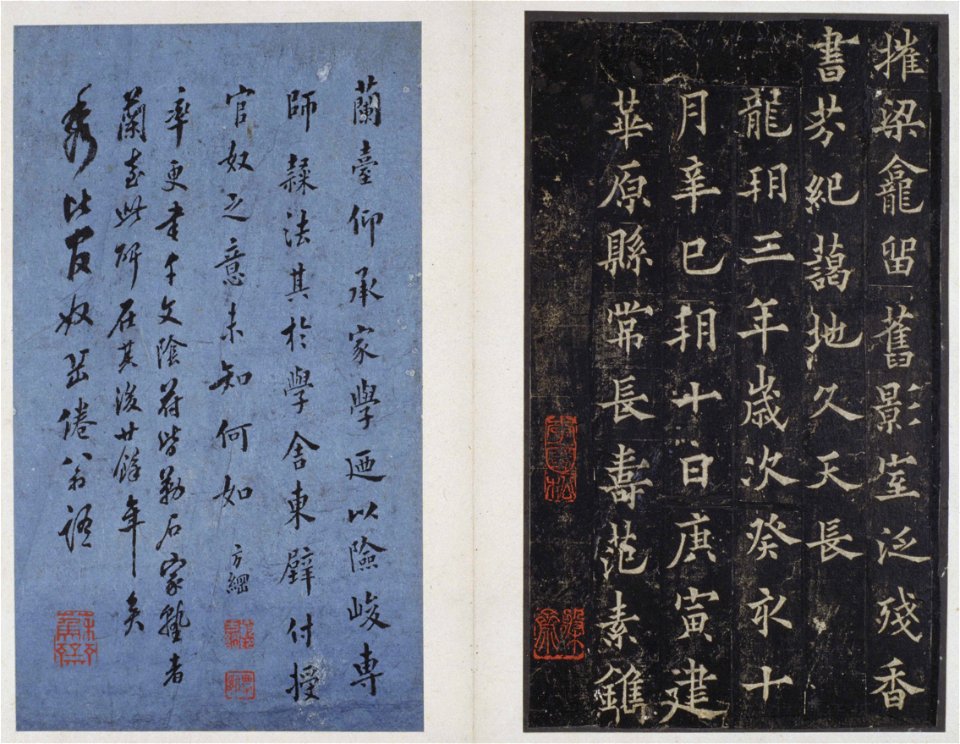 摧梁龕留舊影室泛殘香
書芬紀藹地久天長
龍朔三年歲次癸亥十
月辛巳朔十日庚寅建
華原縣常長壽范素鐫
蘭臺仰承家學迺以險峻專
師隸法其於學舍東壁付授
官奴之意未知何如 方綱
率更書千文陰符皆勒石家塾者
蘭臺此碑在其後廿餘年矣
秀比官奴岳倦翁語